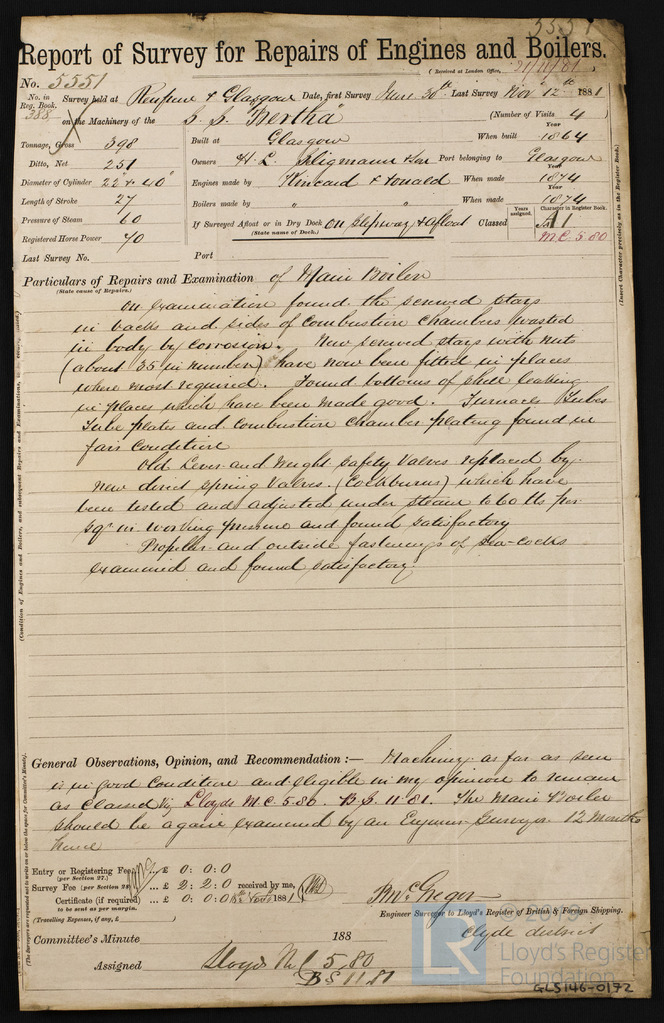 5551
Report of Survey for Repairs of Engines and Boilers.
(Received at London Office, 21/11/81)
No. 5551
No. in Reg. Book. 388 Survey held at Renfrew & Glasgow Date, first Survey June 30th Last Survey Nov 12th 1881
on the Machinery of the S. S. "Bertha" (Number of Visits 4)
Tonnage, Gross 398 Built at Glasgow When built Year 1864
Ditto, Net 251 Owners H. L. Seligmann & Son Port belonging to Glasgow
Diameter of Cylinder 22" & 40" Engines made by Kincaid & Donald When made Year 1874
Length of Stroke 27 Boilers made by " " When made Year 1874
Pressure of Steam 60
Registered Horse Power 70 If Surveyed Afloat or in Dry Dock on Slipway & afloat Classed Years assigned. Character in Register Book. A1
(State name of Dock.) M.C. 5 80
Last Survey No. Port
Particulars of Repairs and Examination of Main Boiler
(State cause of Repairs.)
On examination found the screwed stays
in backs and sides of combustion chambers wasted
in body by corrosion. New screwed stays with nuts
(about 35 in number) have now been fitted in places
where most required. Found bottoms of shell leaking
in places which have been made good. Furnaces Tubes
Tube plates and combustion chamber plating found in
fair condition
Old Lever and Weight Safety Valves replaced by
new direct spring Valves. (Cockburns) which have
been tested and adjusted under steam to 60 lbs per
sqr in working pressure and found satisfactory
Propeller and outside fastenings of sea-cocks
examined and found satisfactory.
General Observations, Opinion, and Recommendation :— Machinery as far as seen
is in good condition and eligible in my opinion to remain
as Classed viz Lloyds M.C. 5.80. B.S. 11 81. The Main Boiler
should be again examined by an Engineer Surveyor 12 Months
hence
Entry or Registering Fee £ 0 : 0 : 0
(per Section 27.)
Survey Fee (per Section 28) £ 2 : 2 : 0 received by me,
Certificate (if required) ... £ 0 : 0 : 0 Novr 1881
to be sent as per margin.
(Travelling Expenses, if any, £ )
B McGregor
Engineer Surveyor to Lloyd's Register of British & Foreign Shipping.
Clyde district
Committee's Minute 188
Assigned Lloyds M.C 5,80
B S 11.81
(Insert Character precisely as in the Register Book.)
(Condition of Engines and Boilers, and subsequent Repairs and Examinations,
(The Surveyors are requested not to write on or below the space for Committee's Minute).
© 2019
LR
Lloyd's Register
Foundation
GLS146-0172